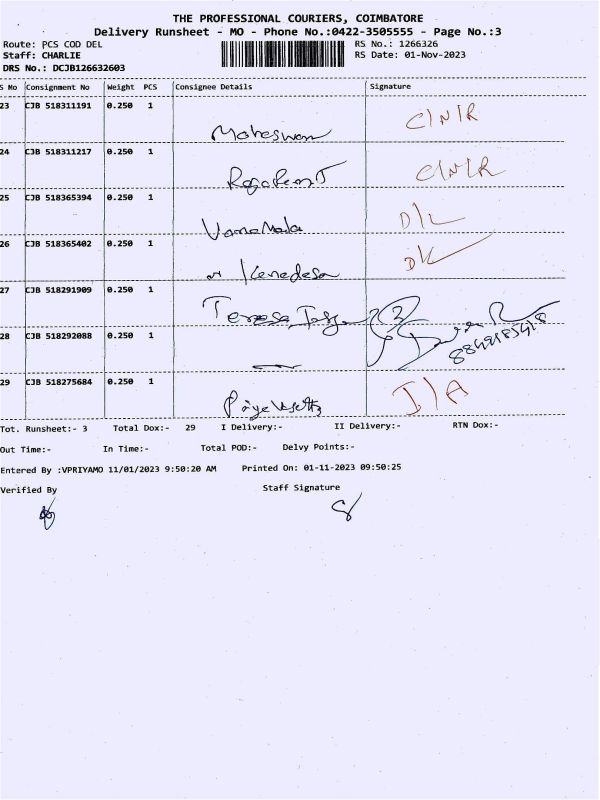 THE PROFESSIONAL COURIERS, COIMBATORE
Delivery Runsheet - MO - Phone No.:0422-3505555 - Page No.:3
Route: PCS COD DEL RS No.: 1266326
Staff: CHARLIE RS Date: 01-Nov-2023
DRS No.: DCJB126632603
S No Consignment No Weight PCS Consignee Details Signature
23 CJB 518311191 0.250 1
C/N/R
24 CJB 518311217 0.250 1
C/N/R
25 CJB 518365394 0.250 1
D/L
26 CJB 518365402 0.250 1
27 CJB 518291909 0.250 1
Teresa
28 CJB 518292088 0.250 1
29 CJB 518275684 0.250 1
I/A
Tot. Runsheet:- 3 Total Dox:- 29 I Delivery:- II Delivery:- RTN Dox:-
Out Time:- In Time:- Total POD:- Delvy Points:-
Entered By :VPRIYAMO 11/01/2023 9:50:20 AM Printed On: 01-11-2023 09:50:25
Verified By Staff Signature